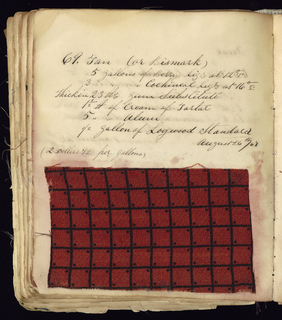 69. Tan (or Bismark)
5 gallons Liqr at 12
3 " Cochineal Liqr at 16
Thicken 23 lbs. gum Substitute
1 # of Cream of Tartar
5 " Alum
gallon of Logwood Standard
August
(2 per gallon)